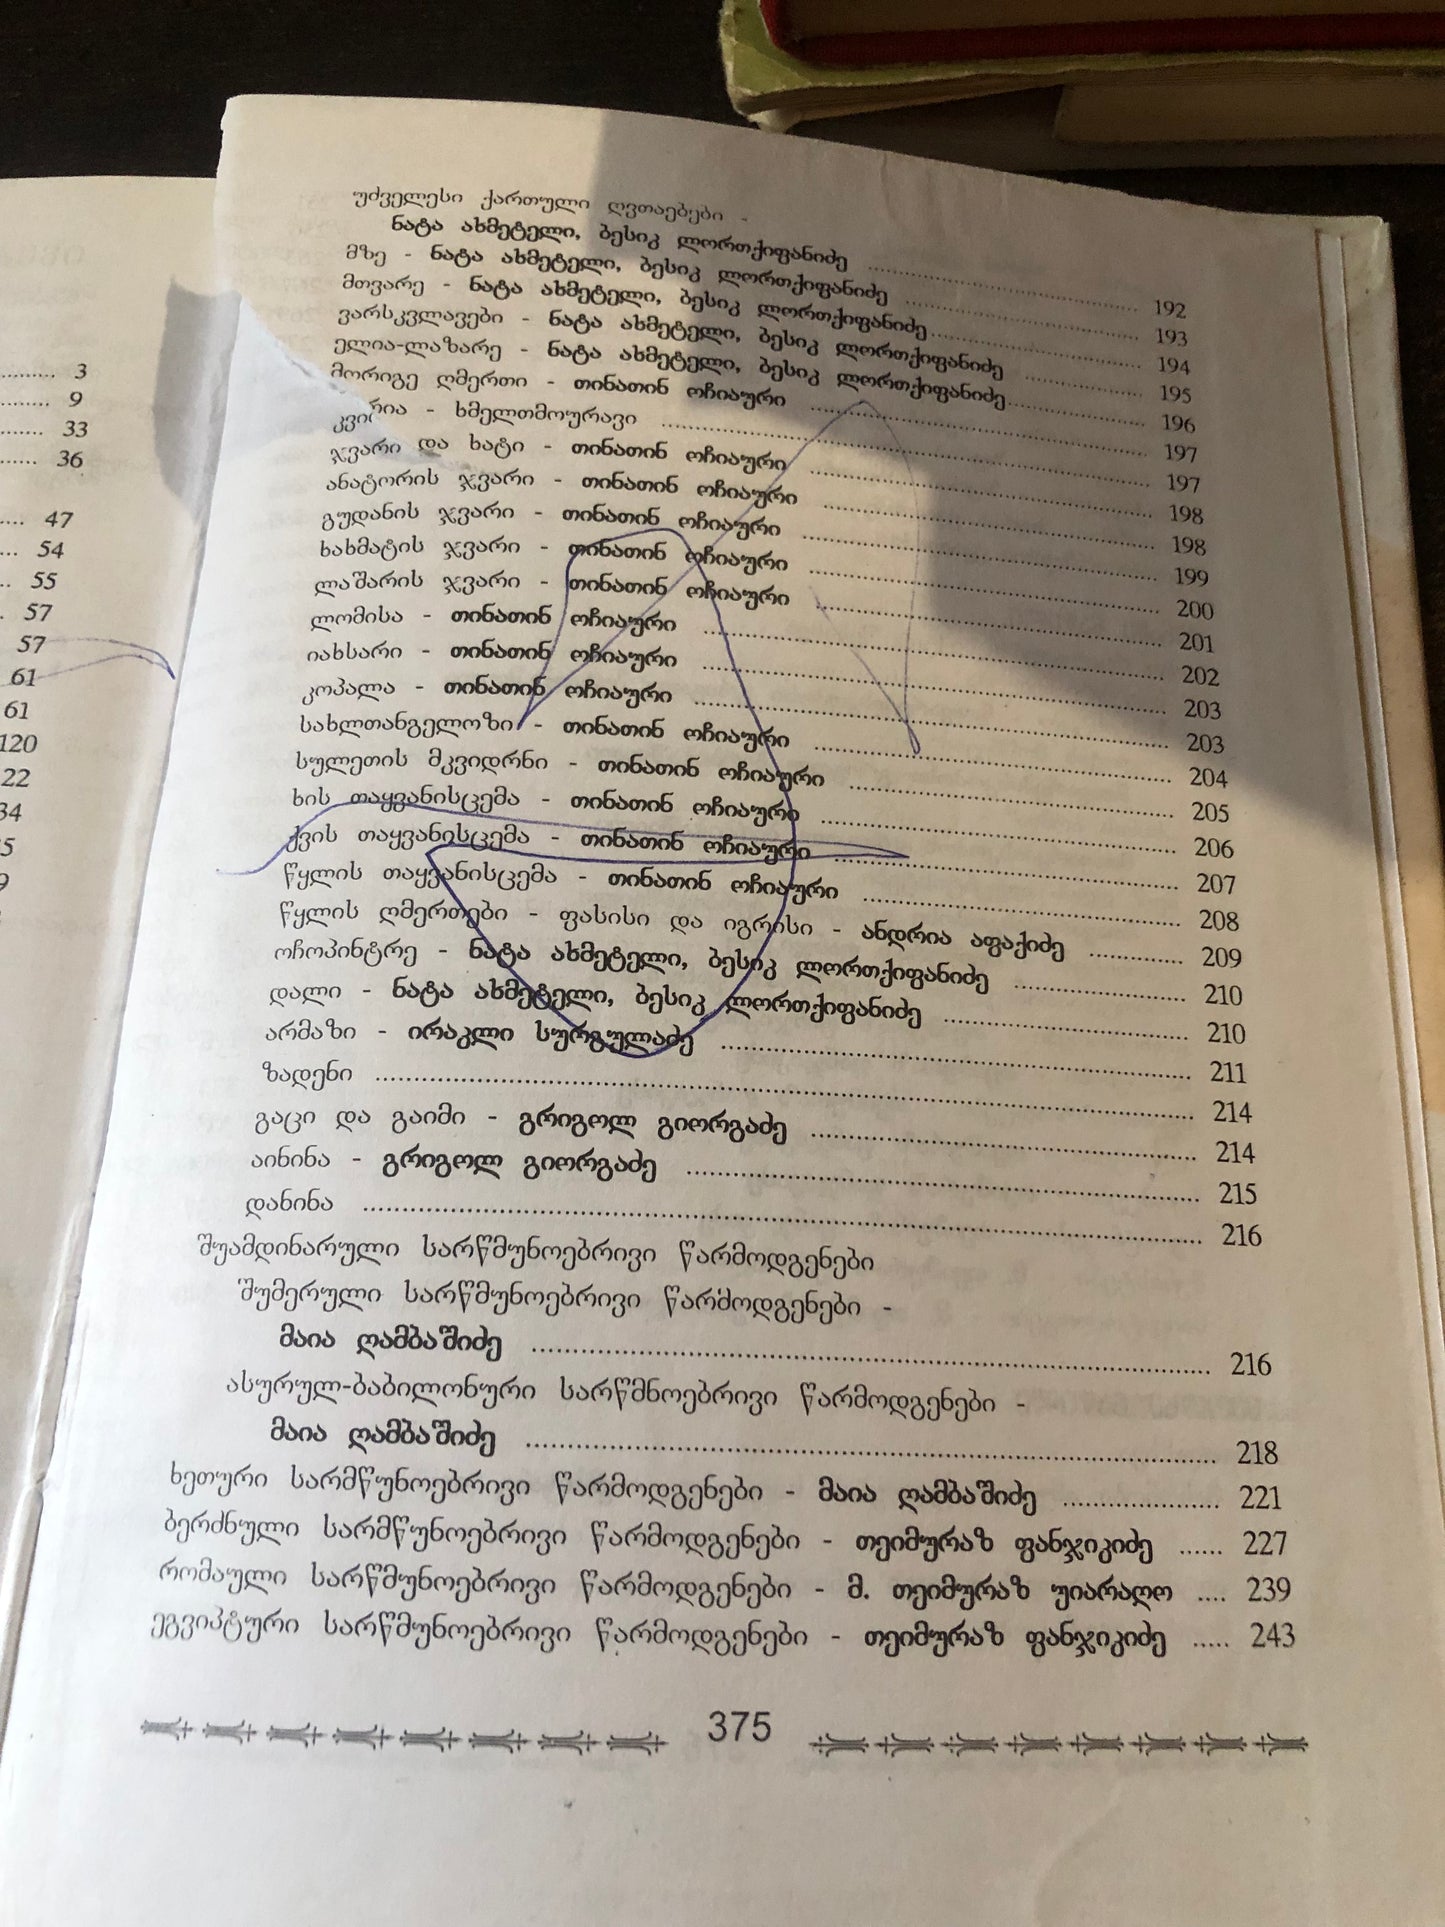 3
9
33
36
47
54
55
57
57
61
61
120
უძველესი ქართული ღვთაებები -
ნატა ახმეტელი, ბესიკ ლორთქიფანიძე ........ 192
მზე - ნატა ახმეტელი, ბესიკ ლორთქიფანიძე ........ 193
მთვარე - ნატა ახმეტელი, ბესიკ ლორთქიფანიძე ........ 194
ვარსკვლავები - ნატა ახმეტელი, ბესიკ ლორთქიფანიძე ........ 195
ელია-ლაზარე - ნატა ახმეტელი, ბესიკ ლორთქიფანიძე ........ 196
მორიგე ღმერთი - თინათინ ოჩიაური ........ 197
კვირია - ხმელთმოურავი ........ 197
ჯვარი და ხატი - თინათინ ოჩიაური ........ 198
ანატორის ჯვარი - თინათინ ოჩიაური ........ 198
გუდანის ჯვარი - თინათინ ოჩიაური ........ 199
ხახმატის ჯვარი - თინათინ ოჩიაური ........ 200
ლაშარის ჯვარი - თინათინ ოჩიაური ........ 201
ლომისა - თინათინ ოჩიაური ........ 202
იახსარი - თინათინ ოჩიაური ........ 203
კოპალა - თინათინ ოჩიაური ........ 203
სახლთანგელოზი - თინათინ ოჩიაური ........ 204
სულეთის მკვიდრნი - თინათინ ოჩიაური ........ 205
ხის თაყვანისცემა - თინათინ ოჩიაური ........ 206
ქვის თაყვანისცემა - თინათინ ოჩიაური ........ 207
წყლის თაყვანისცემა - თინათინ ოჩიაური ........ 208
წყლის ღმერთები - ფასისი და იგრისი - ანდრია აფაქიძე ........ 209
ოჩოპინტრე - ნატა ახმეტელი, ბესიკ ლორთქიფანიძე ........ 210
დალი - ნატა ახმეტელი, ბესიკ ლორთქიფანიძე ........ 210
არმაზი - ირაკლი სურგულაძე ........ 211
ზადენი ........ 214
გაცი და გაიმი - გრიგოლ გიორგაძე ........ 214
აინინა - გრიგოლ გიორგაძე ........ 215
დანინა ........ 216
შუამდინარული სარწმუნოებრივი წარმოდგენები
შუმერული სარწმუნოებრივი წარმოდგენები -
მაია ღამბაშიძე ........ 216
ასურულ-ბაბილონური სარწმნოებრივი წარმოდგენები -
მაია ღამბაშიძე ........ 218
ხეთური სარმწუნოებრივი წარმოდგენები - მაია ღამბაშიძე ........ 221
ბერძნული სარმწუნოებრივი წარმოდგენები - თეიმურაზ ფანჯიკიძე ...... 227
რომაული სარწმუნოებრივი წარმოდგენები - მ. თეიმურაზ უიარაღო .... 239
ეგვიპტური სარწმუნოებრივი წარმოდგენები - თეიმურაზ ფანჯიკიძე ..... 243
375